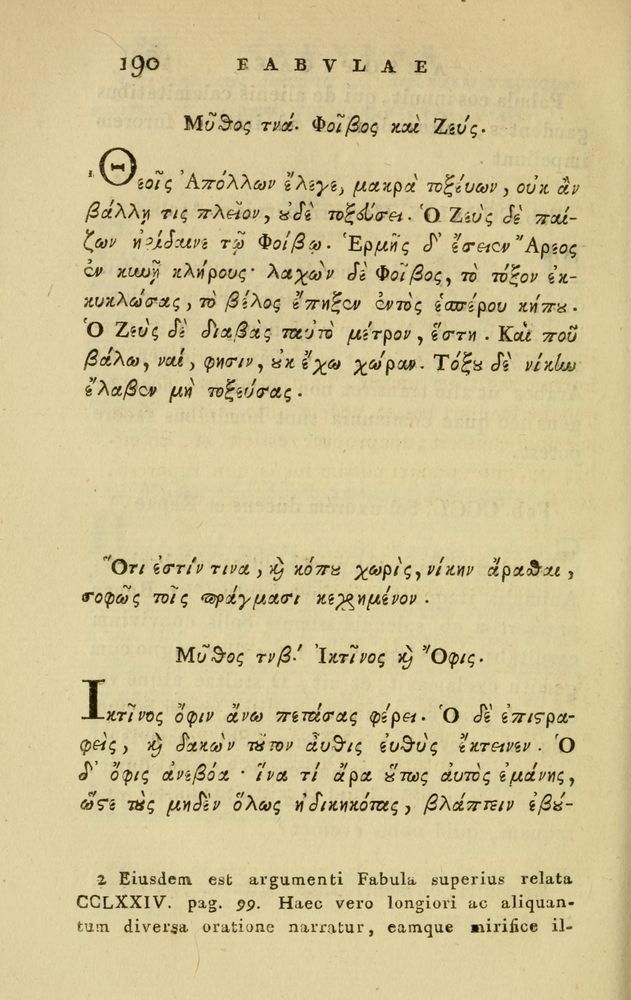 190 FABVLAE
Μῦθος τνά. Φοῖβος καὶ Ζεύς.
Θεοῖς Ἀπόλλων ἔλεγε, μακρὰ τοξεύων, οὐκ ἂν
βάλλῃ τις πλεῖον, ȣδὲ τοξεύσει. Ὁ Ζεὺς δὲ παί-
ζων ἠρίδαινε τῷ Φοίβῳ. Ἑρμῆς δ' ἔσειεν Ἄρεος
ἐν κυνῇ κλήρους· λαχὼν δὲ Φοῖβος, τὸ τόξον ἐκ-
κυκλώσας, τὸ βέλος ἔπηξεν ἐντὸς ἑσπέρου κήπȣ.
Ὁ Ζεὺς δὲ διαβὰς ταὐτὸ μέτρον, ἔστη. Καὶ ποῦ
βάλω, ναί, φησιν, ȣκ ἔχω χώραν. Τόξȣ δὲ νίκην
ἔλαβεν μὴ τοξεύσας.
Ὅτι ἐστίν τινα, ϗ κόπȣ χωρὶς, νίκην ἄρασθαι,
σοφῶς τοῖς πράγμασι κεχρημένον.
Μῦθος τνβ.' Ἰκτῖνος ϗ Ὄφις.
Ἰκτῖνος ὄφιν ἄνω πετάσας φέρει. Ὁ δὲ ἐπιστρα-
φεὶς, ϗ δακὼν τȣτον αὖθις εὐθὺς ἔκτεινεν. Ὁ
δ' ὄφις ἀνεβόα· ἵνα τί ἄρα ȣ̔́τως αὐτὸς ἐμάνης,
ὥστε τȣ̀ς μηδὲν ὅλως ἠδικηκότας, βλάπτειν ἐβȣ́-
2 Eiusdem est argumenti Fabula superius relata
CCLXXIV. pag. 99. Haec vero longiori ac aliquan-
tum diversa oratione narratur, eamque mirifice il-